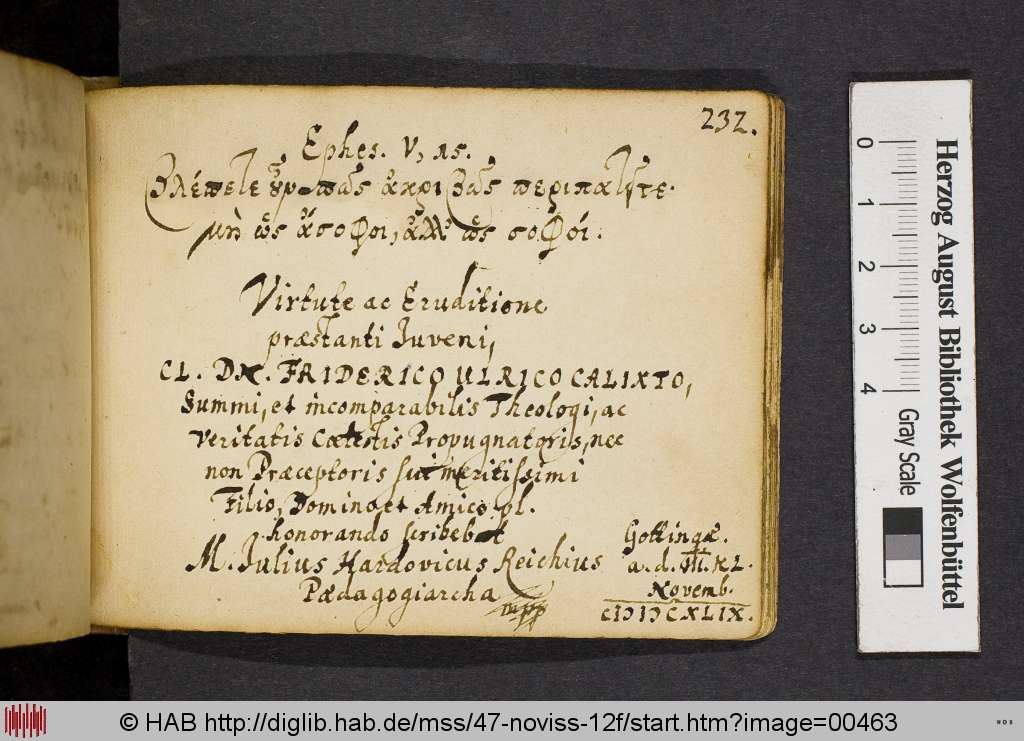 232.
Ephes. V, 15.
Βλέπετε οὖν πῶς ἀκριβῶς περιπατεῖτε.
μὴ ὡς ἄσοφοι, ἀλλ' ὡς σοφοί.
Virtute ac Eruditione
præstanti Iuveni,
CL. DN. FRIDERICO ULRICO CALIXTO,
Summi, et incomparabilis Theologi, ac
Veritatis Cœlestis Propugnatoris, nec
non Præceptoris sui meritissimi
Filio, Domino et Amico pl.
honorando scribebat
M. Julius Hardovicus Reichius
Pædagogiarcha mpp
Gottingæ.
a. d. VII. KL.
Novemb.
CIƆIƆCXLIX.
Herzog August Bibliothek Wolfenbüttel
0 1 2 3 4
Gray Scale
© HAB http://diglib.hab.de/mss/47-noviss-12f/start.htm?image=00463